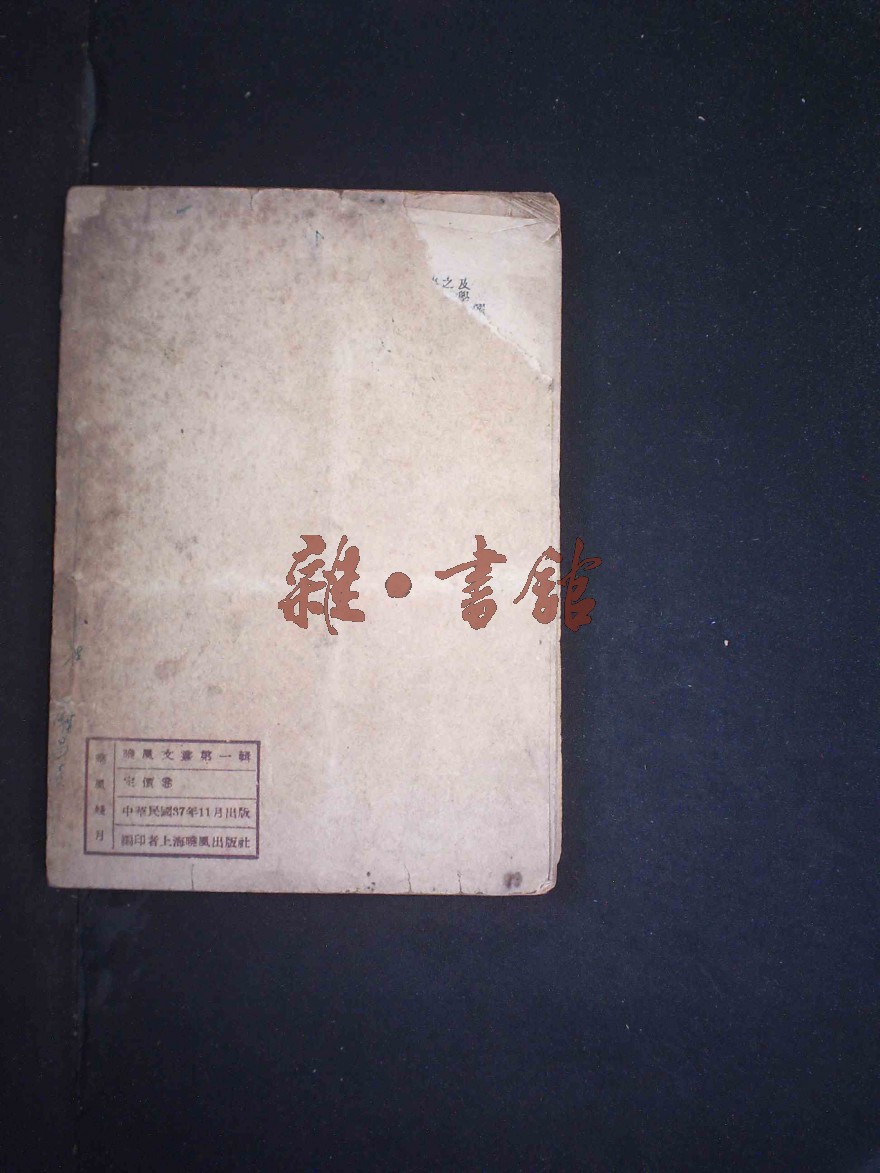 之及
學
雜·書館
曉風殘月
曉風文叢第一輯
定價
中華民國37年11月出版
編印者上海曉風出版社